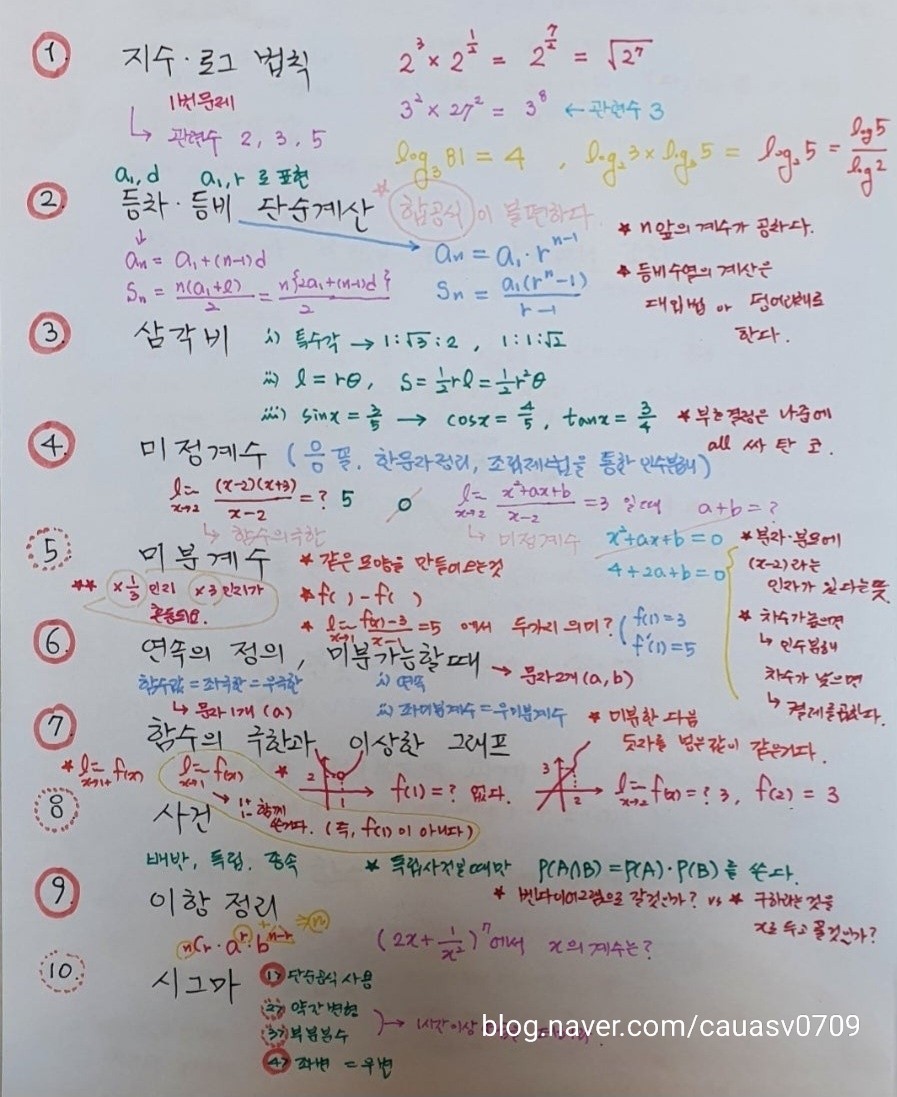 1. 지수·로그 법칙 2³ × 2^½ = 2^(7/2) = √2⁷
1번문제
↳ 관련수 2, 3, 5
3² × 27² = 3⁸ ← 관련수 3
log₃81 = 4 , log₂3 × log₃5 = log₂5 = log5/log2
a₁, d a₁, r 로 표현
2. 등차·등비 단순계산 ★ 합공식이 불편하다.
↓
aₙ = a₁ + (n-1)d
Sₙ = n(a₁+l)/2 = n{2a₁+(n-1)d}/2
aₙ = a₁·r^(n-1)
Sₙ = a₁(rⁿ-1)/(r-1)
★ n앞의 계수가 공차다.
★ 등비수열의 계산은
대입법 or 덩어리째로
한다.
3. 삼각비 i) 특수각 → 1:√3:2 , 1:1:√2
ii) l = rθ, S = ½rl = ½r²θ
iii) sinx = 3/5 → cosx = 4/5, tanx = 3/4 ★ 부호결정은 나중에
all 싸 탄 코.
4. 미정계수 ( 음 필, 한문자정리, 조립제법을 통한 인수분해)
lim x→2 (x-2)(x+3)/(x-2) = ? 5
↳ 함수의극한
0
lim x→2 (x²+ax+b)/(x-2) = 3 일때 a+b = ?
↳ 미정계수 x²+ax+b = 0
4+2a+b = 0
★ 분자·분모에
(x-2)라는
인자가 있다는뜻
★ 차수가높으면
↳ 인수분해
차수가 낮으면
↳ 켤레를곱한다.
5. 미분계수 ★ 같은 모양을 만들어내는것
★★ ×⅓ 인지 ×3 인지가
혼동되요.
★ f( ) - f( )
★ lim x→1 (f(x)-3)/(x-1) = 5 에서 두가지 의미? ( f(1) = 3
f'(1) = 5
6. 연속의 정의 , 미분가능할때 → 문자2개 (a, b)
함수값 = 좌극한 = 우극한
↳ 문자1개 (a)
i) 연속
ii) 좌미분계수 = 우미분계수 ★ 미분한 다음
숫자를 넣은값이 같은거다.
7. 함수의 극한과 이상한 그래프
★ lim x→1+ f(x) lim x→1 f(x)
→ 1+ 1- 함께
쓴거다. (즉, f(1)이 아니다)
★ 2 1 → f(1) = ? 없다. 3 2 → lim x→2 f(x) = ? 3, f(2) = 3
8. 사건
배반, 독립, 종속 ★ 독립사건일때만 P(A∩B) = P(A)·P(B) 를 쓴다.
★ 벤다이어그램으로 갈것인가? vs ★ 구하라는것을
x로 두고 풀것인가?
9. 이항 정리
ₙCᵣ·aʳ·bⁿ⁻ʳ ⇒ n
(2x + 1/x²)⁷ 에서 x의 계수는?
10. 시그마 1> 단순공식 사용
2> 약간 변형
3> 부분분수
→ 1시간이상
4> 좌변 = 우변
blog.naver.com/cauasv0709